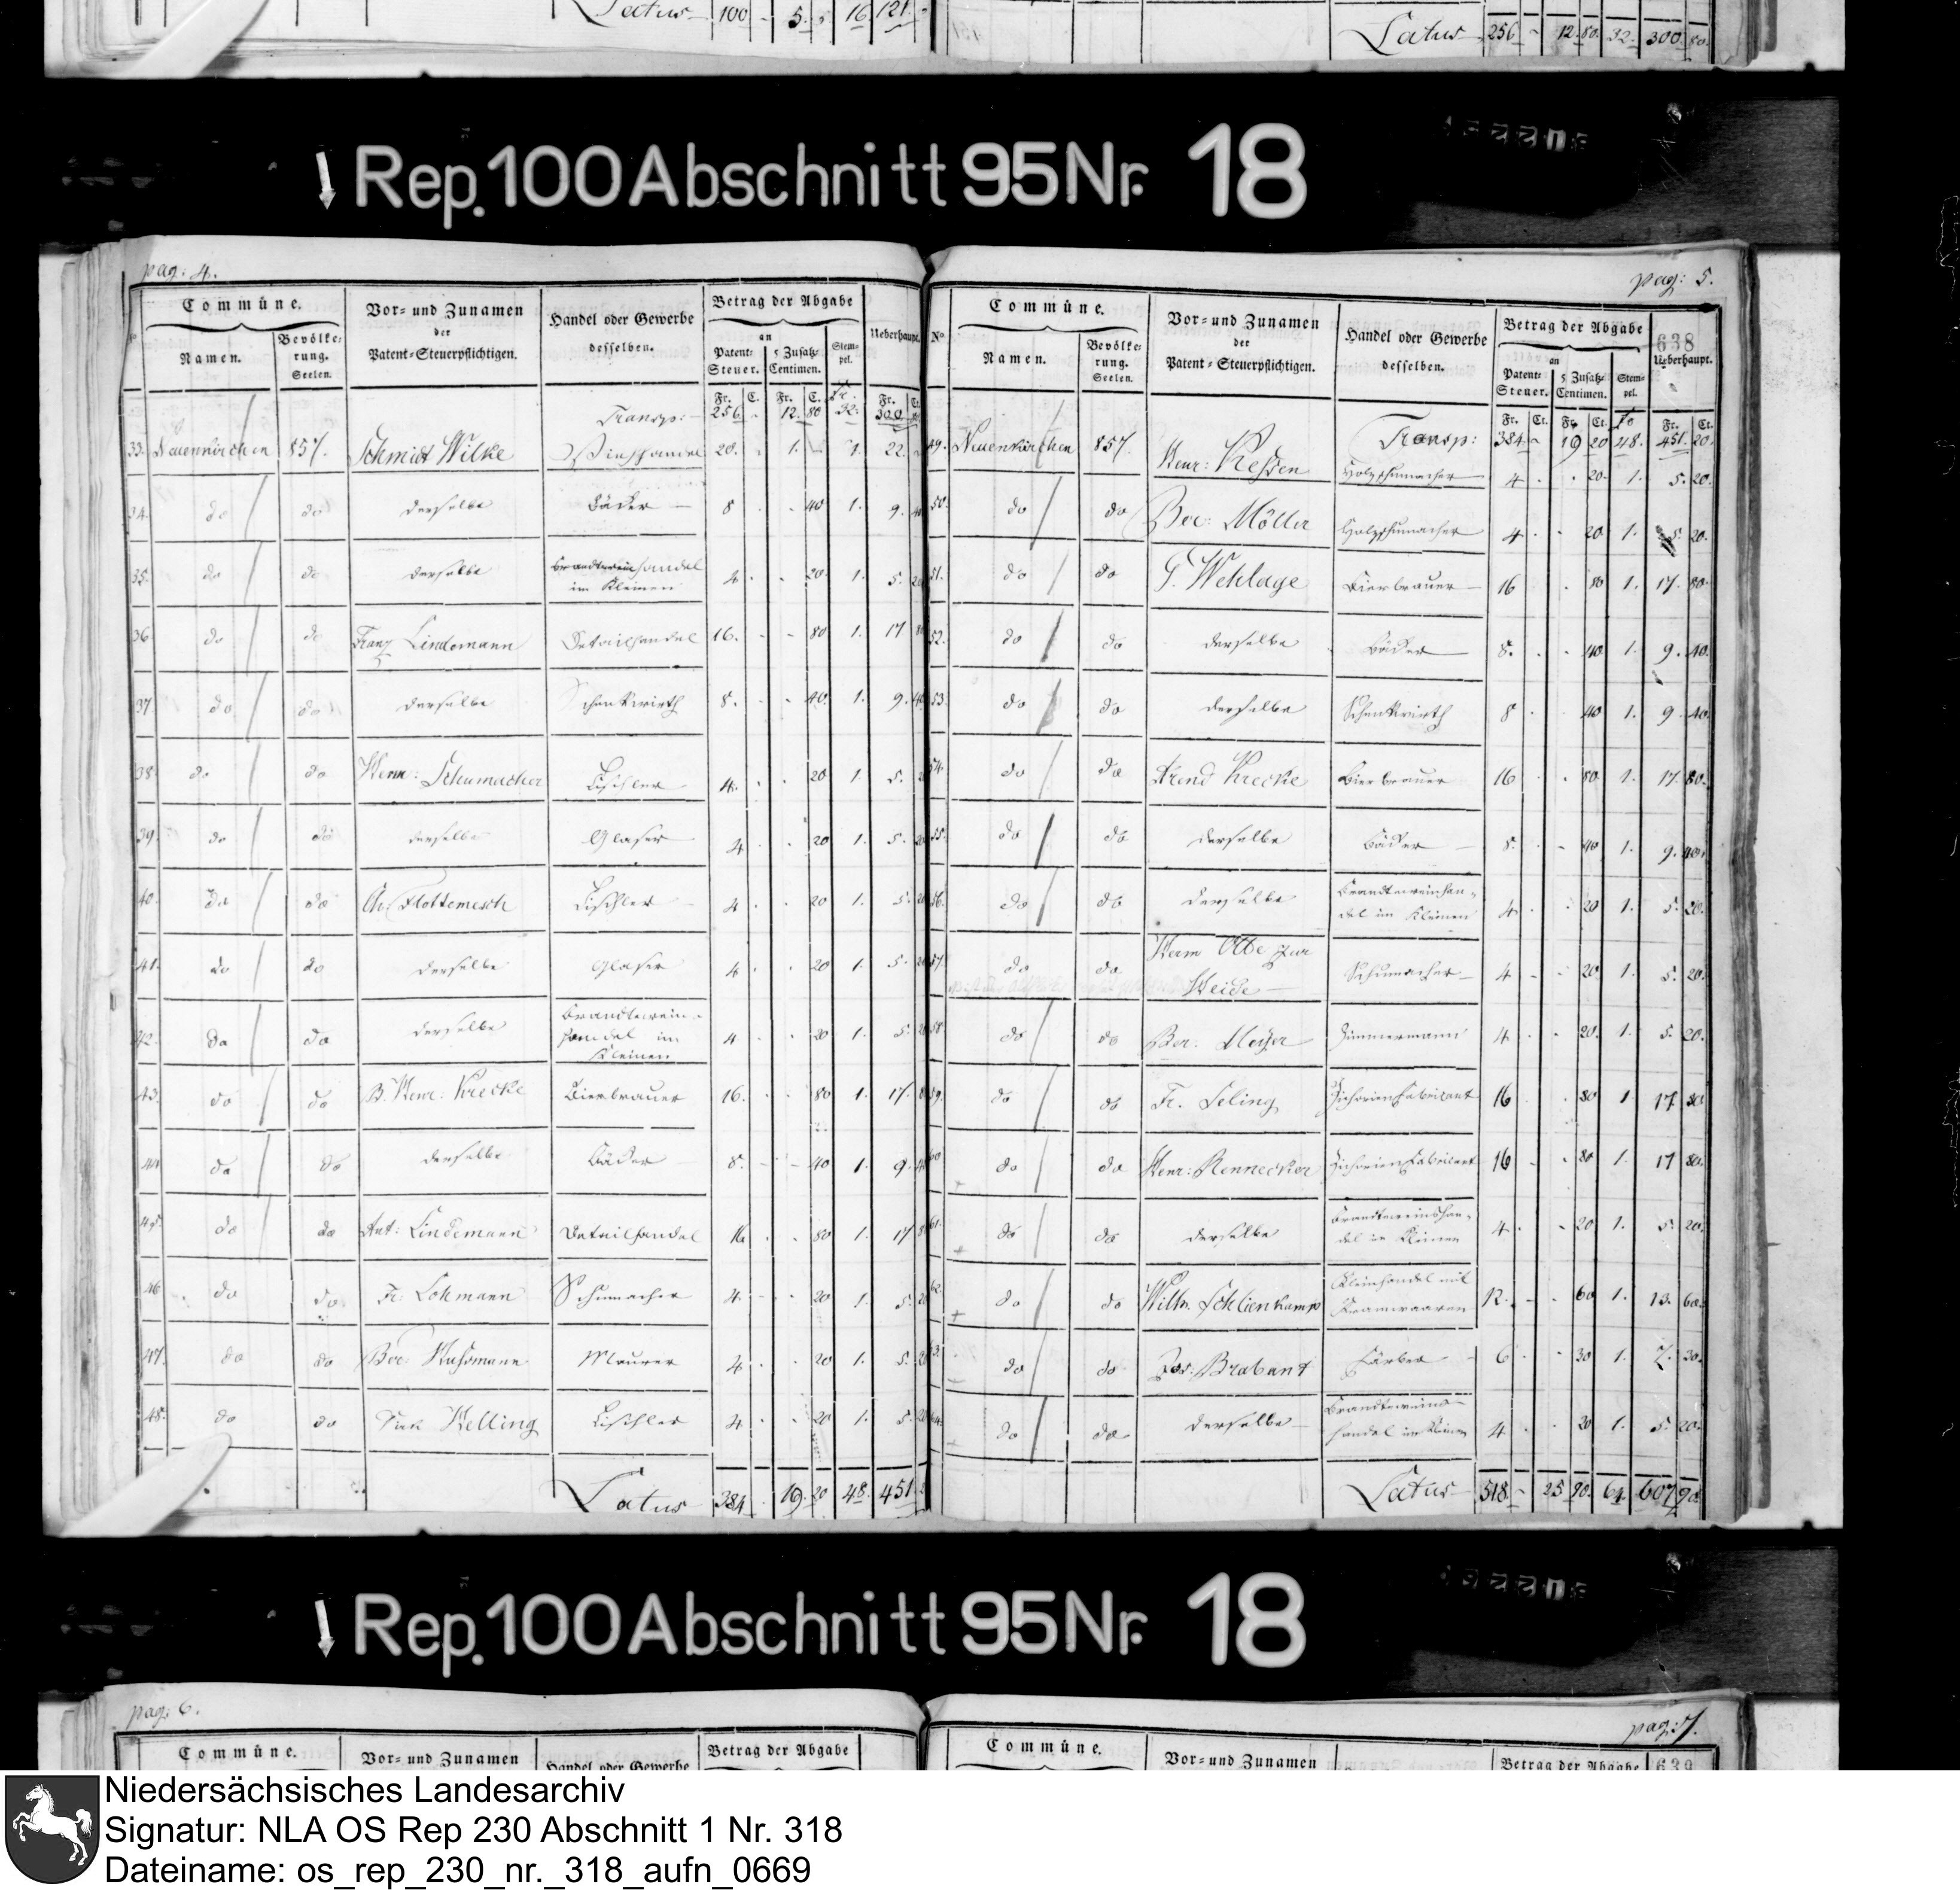 Latus 100 - 5. 16 121.
Latus 256 - 12. 80. 32. 300. 80.
Rep. 100 Abschnitt 95 Nr. 18
pag: 4.
Commüne.
Namen.
Bevölke=
rung.
Seelen.
Vor= und Zunamen
der
Patent=Steuerpflichtigen.
Handel oder Gewerbe
desselben.
Betrag der Abgabe
an
Patent=
Steuer.
5 Zusatz=
Centimen.
Stem=
pel.
Ueberhaupt.
Fr. C. Fr. C. Fr. Ct.
Transp: 256. - 12. 80 32. 300
33. Neuenkirchen 857. Schmidt Wilke 20. 1. 1. 22.
34. do do derselbe Bäcker 8 40 1. 9.
35. do do derselbe Brandtweinhandel
im Kleinen 4 20. 1. 5.
36. do do Franz Lindemann Detailhandel 16. 80 1. 17
37. do do derselbe Schenkwirth 8. 40. 1. 9.
38. do do Herm: Schumacher Tischler 4. 20 1. 5.
39. do do derselbe Glaser 4 20 1. 5.
40. do do Ch. Flottemesch Tischler 4 20 1. 5.
41. do do derselbe Glaser 4 20 1. 5.
42. do do derselbe Brandtwein=
handel im
Kleinen 4 20 1. 5.
43. do do B. Henr: Krecke Bierbrauer 16. 80 1. 17.
44 do do derselbe Bäcker 8. 40 1. 9.
45. do do Ant: Lindemann Detailhandel 16 80 1. 17
46 do do Fr: Lohmann Schumacher 4. 20 1. 5.
47. do do Ber: Maurer 4 20 1. 5.
48. do do Helling Tischler 4 20 1. 5.
Latus 384 19. 20 48. 451.
pag: 5.
638
No
Commüne.
Namen.
Bevölke=
rung.
Seelen.
Vor= und Zunamen
der
Patent=Steuerpflichtigen.
Handel oder Gewerbe
desselben.
Betrag der Abgabe
an
Patent=
Steuer.
5 Zusatz=
Centimen.
Stem=
pel.
Ueberhaupt.
Fr. Ct. Fr. Ct. Fr. Ct.
Transp: 384 19 20 48. 451. 20.
49. Neuenkirchen 857. Henr: Kessen Holzschumacher 4 20. 1. 5. 20.
50. do do Ber: Möller Holzschumacher 4 20 1. 5. 20.
51. do do G. Wehlage Bierbrauer 16 80 1. 17. 80.
52. do do derselbe Bäcker 8. 40 1. 9. 40.
53. do do derselbe Schenkwirth 8 40 1. 9. 40.
54. do do Arend Krecke Bierbrauer 16 80. 1. 17. 80.
55. do do derselbe Bäcker 8. 40 1. 9. 40.
56. do do derselbe Brandtweinhan=
del im Kleinen 4 20 1. 5. 20.
57. do do Herm Otto zur
Heide Schumacher 4 20 1. 5. 20.
58. do do Ber. Meyer Zimmermann 4 20. 1. 5. 20.
59. do do Fr. Seling Zichorien Fabricant 16 80 1 17. 80
60 do do Henr: Rennecker Zichorien Fabricant 16 80 1. 17 80.
61. do do derselbe Brandtweinshan=
del im Kleinen 4. 20 1. 5. 20.
62. do do Wilh. Schlienkamp Kleinhandel mit
Kramwaaren 12. 60 1. 13. 60.
63. do do Jos: Brabant Färber 6 30 1. 7. 30.
64. do do derselbe Brandtweins=
handel im Kleinen 4 20 1. 5. 20.
Latus 518. 25 90. 64. 607. 90.
Rep. 100 Abschnitt 95 Nr. 18
pag: 6.
Commüne.
Vor= und Zunamen
Handel oder Gewerbe
Betrag der Abgabe
pag: 7.
Commüne.
Vor= und Zunamen
Betrag der Abgabe
639
Niedersächsisches Landesarchiv
Signatur: NLA OS Rep 230 Abschnitt 1 Nr. 318
Dateiname: os_rep_230_nr._318_aufn_0669